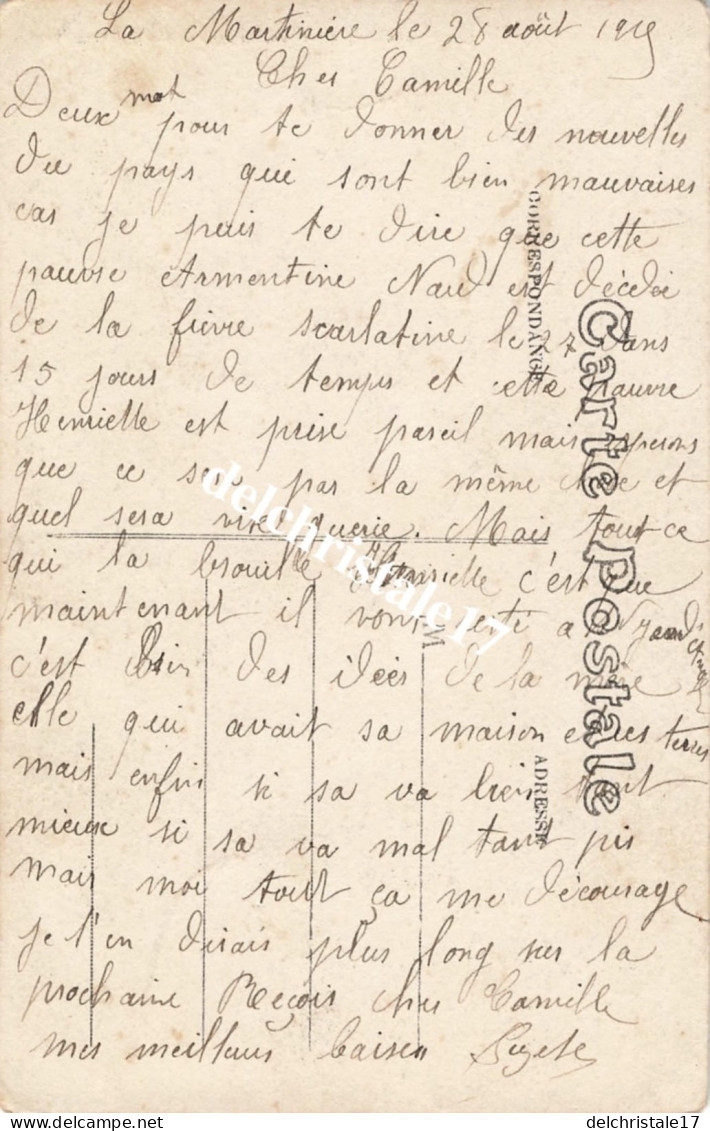 La Martinière le 28 août 1919
Cher Camille
Deux mot pour te donner des nouvelles
du pays qui sont bien mauvaises
car je puis te dire que cette
pauvre Armentine Naud est décédée
de la fièvre scarlatine le 27 dans
15 jours de temps et cette pauvre
Henriette est prise pareil mais esperons
que ce sera pas la même chose et
quel sera vite guerie. Mais tout ce
qui la brouille Henriette c'est que
maintenant il vont a
c'est bien des idées de la mère
elle qui avait sa maison et ses terres
mais enfin si sa va bien tant
mieux si sa va mal tant pis
mais moi tout ça me décourage
je t'en dirais plus long sur la
prochaine Reçois cher Camille
mes meilleurs baisers
CORRESPONDANCE
Carte Postale
M
ADRESSE
delchristale17
delcampe.net
delchristale17